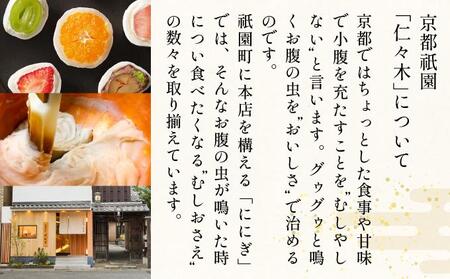 京都祇園
「仁々木」について
京都ではちょっとした食事や甘味
で小腹を充たすことを“むしやし
ない”と言います。グゥグゥと鳴
くお腹の虫を“おいしさ”で治める
のです。
祇園町に本店を構える「ににぎ」
では、そんなお腹の虫が鳴いた時
につい食べたくなる“むしおさえ”
の数々を取り揃えています。